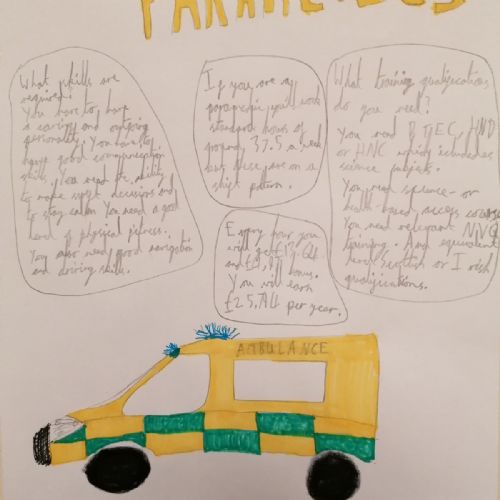 PARAMEDICS
What skills are
required?
You have to have
a caring and outgoing
personality. You have to
have good communication
skills. You need the ability
to make swift decisions and
to stay calm. You need a good
level of physical fitness.
You also need good navigation
and driving skills.
If you are a
paramedic, you'll work
standard hours of
around 37.5 a week
but are on a
shift pattern.
Every hour you
will get £13.64
and bonus.
You will earn
per year.
What training qualifications
do you need?
You need BTEC, HND
or HNC which includes a
science subject.
You need science- or
health-based access course
You need relevant NVQ
training. Any equivalent
Scottish or Irish
qualifications.
AMBULANCE